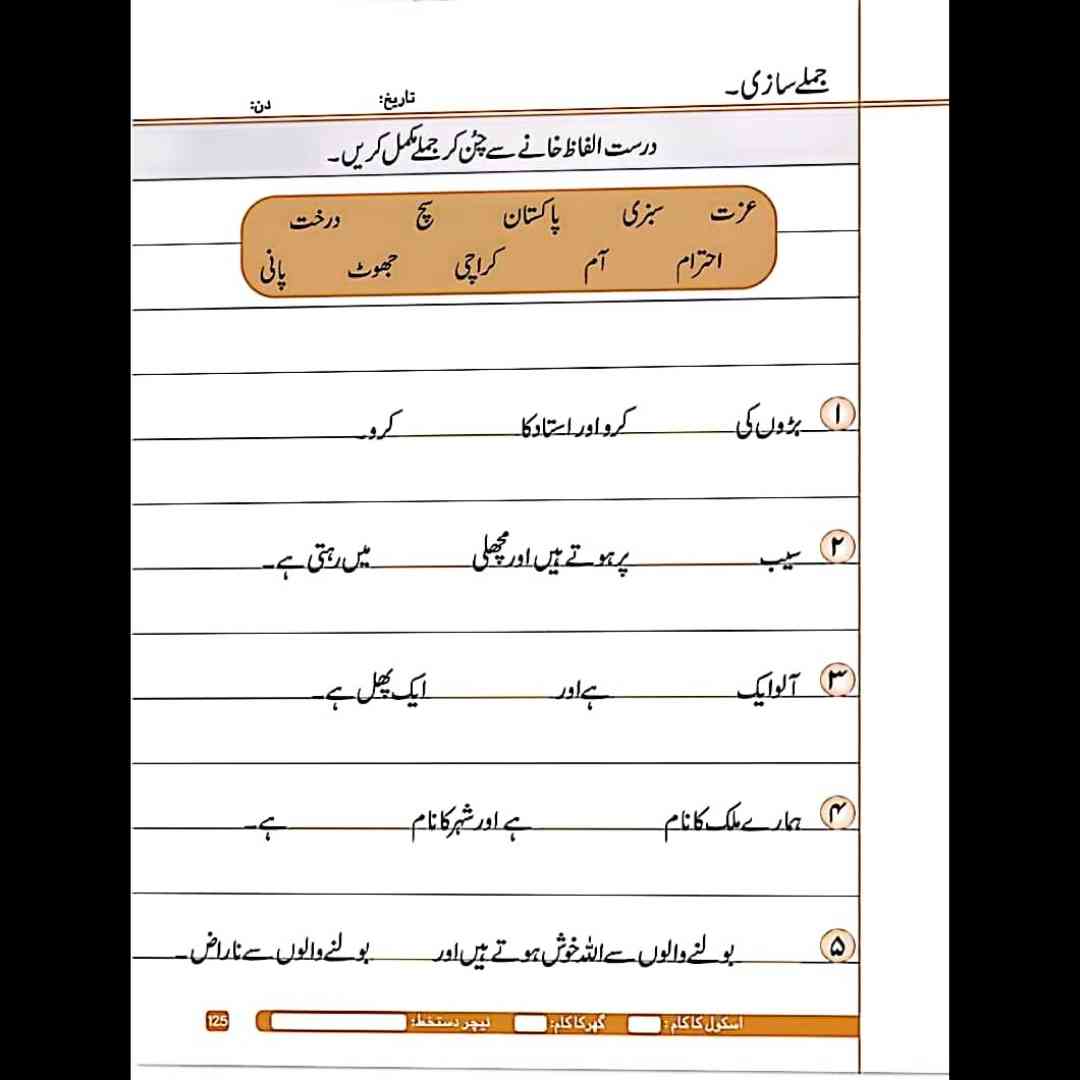 جملے سازی۔
تاریخ: دن:
درست الفاظ خانے سے چُن کر جملے مکمل کریں۔
عزت سبزی پاکستان سچ درخت
احترام آم کراچی جھوٹ پانی
۱ بڑوں کی کرو اور استاد کا کرو۔
۲ سیب پر ہوتے ہیں اور مچھلی میں رہتی ہے۔
۳ آلو ایک ہے اور ایک پھل ہے۔
۴ ہمارے ملک کا نام ہے اور شہر کا نام ہے۔
۵ بولنے والوں سے اللہ خوش ہوتے ہیں اور بولنے والوں سے ناراض۔
اسکول کا کام: گھر کا کام: ٹیچر دستخط: 125